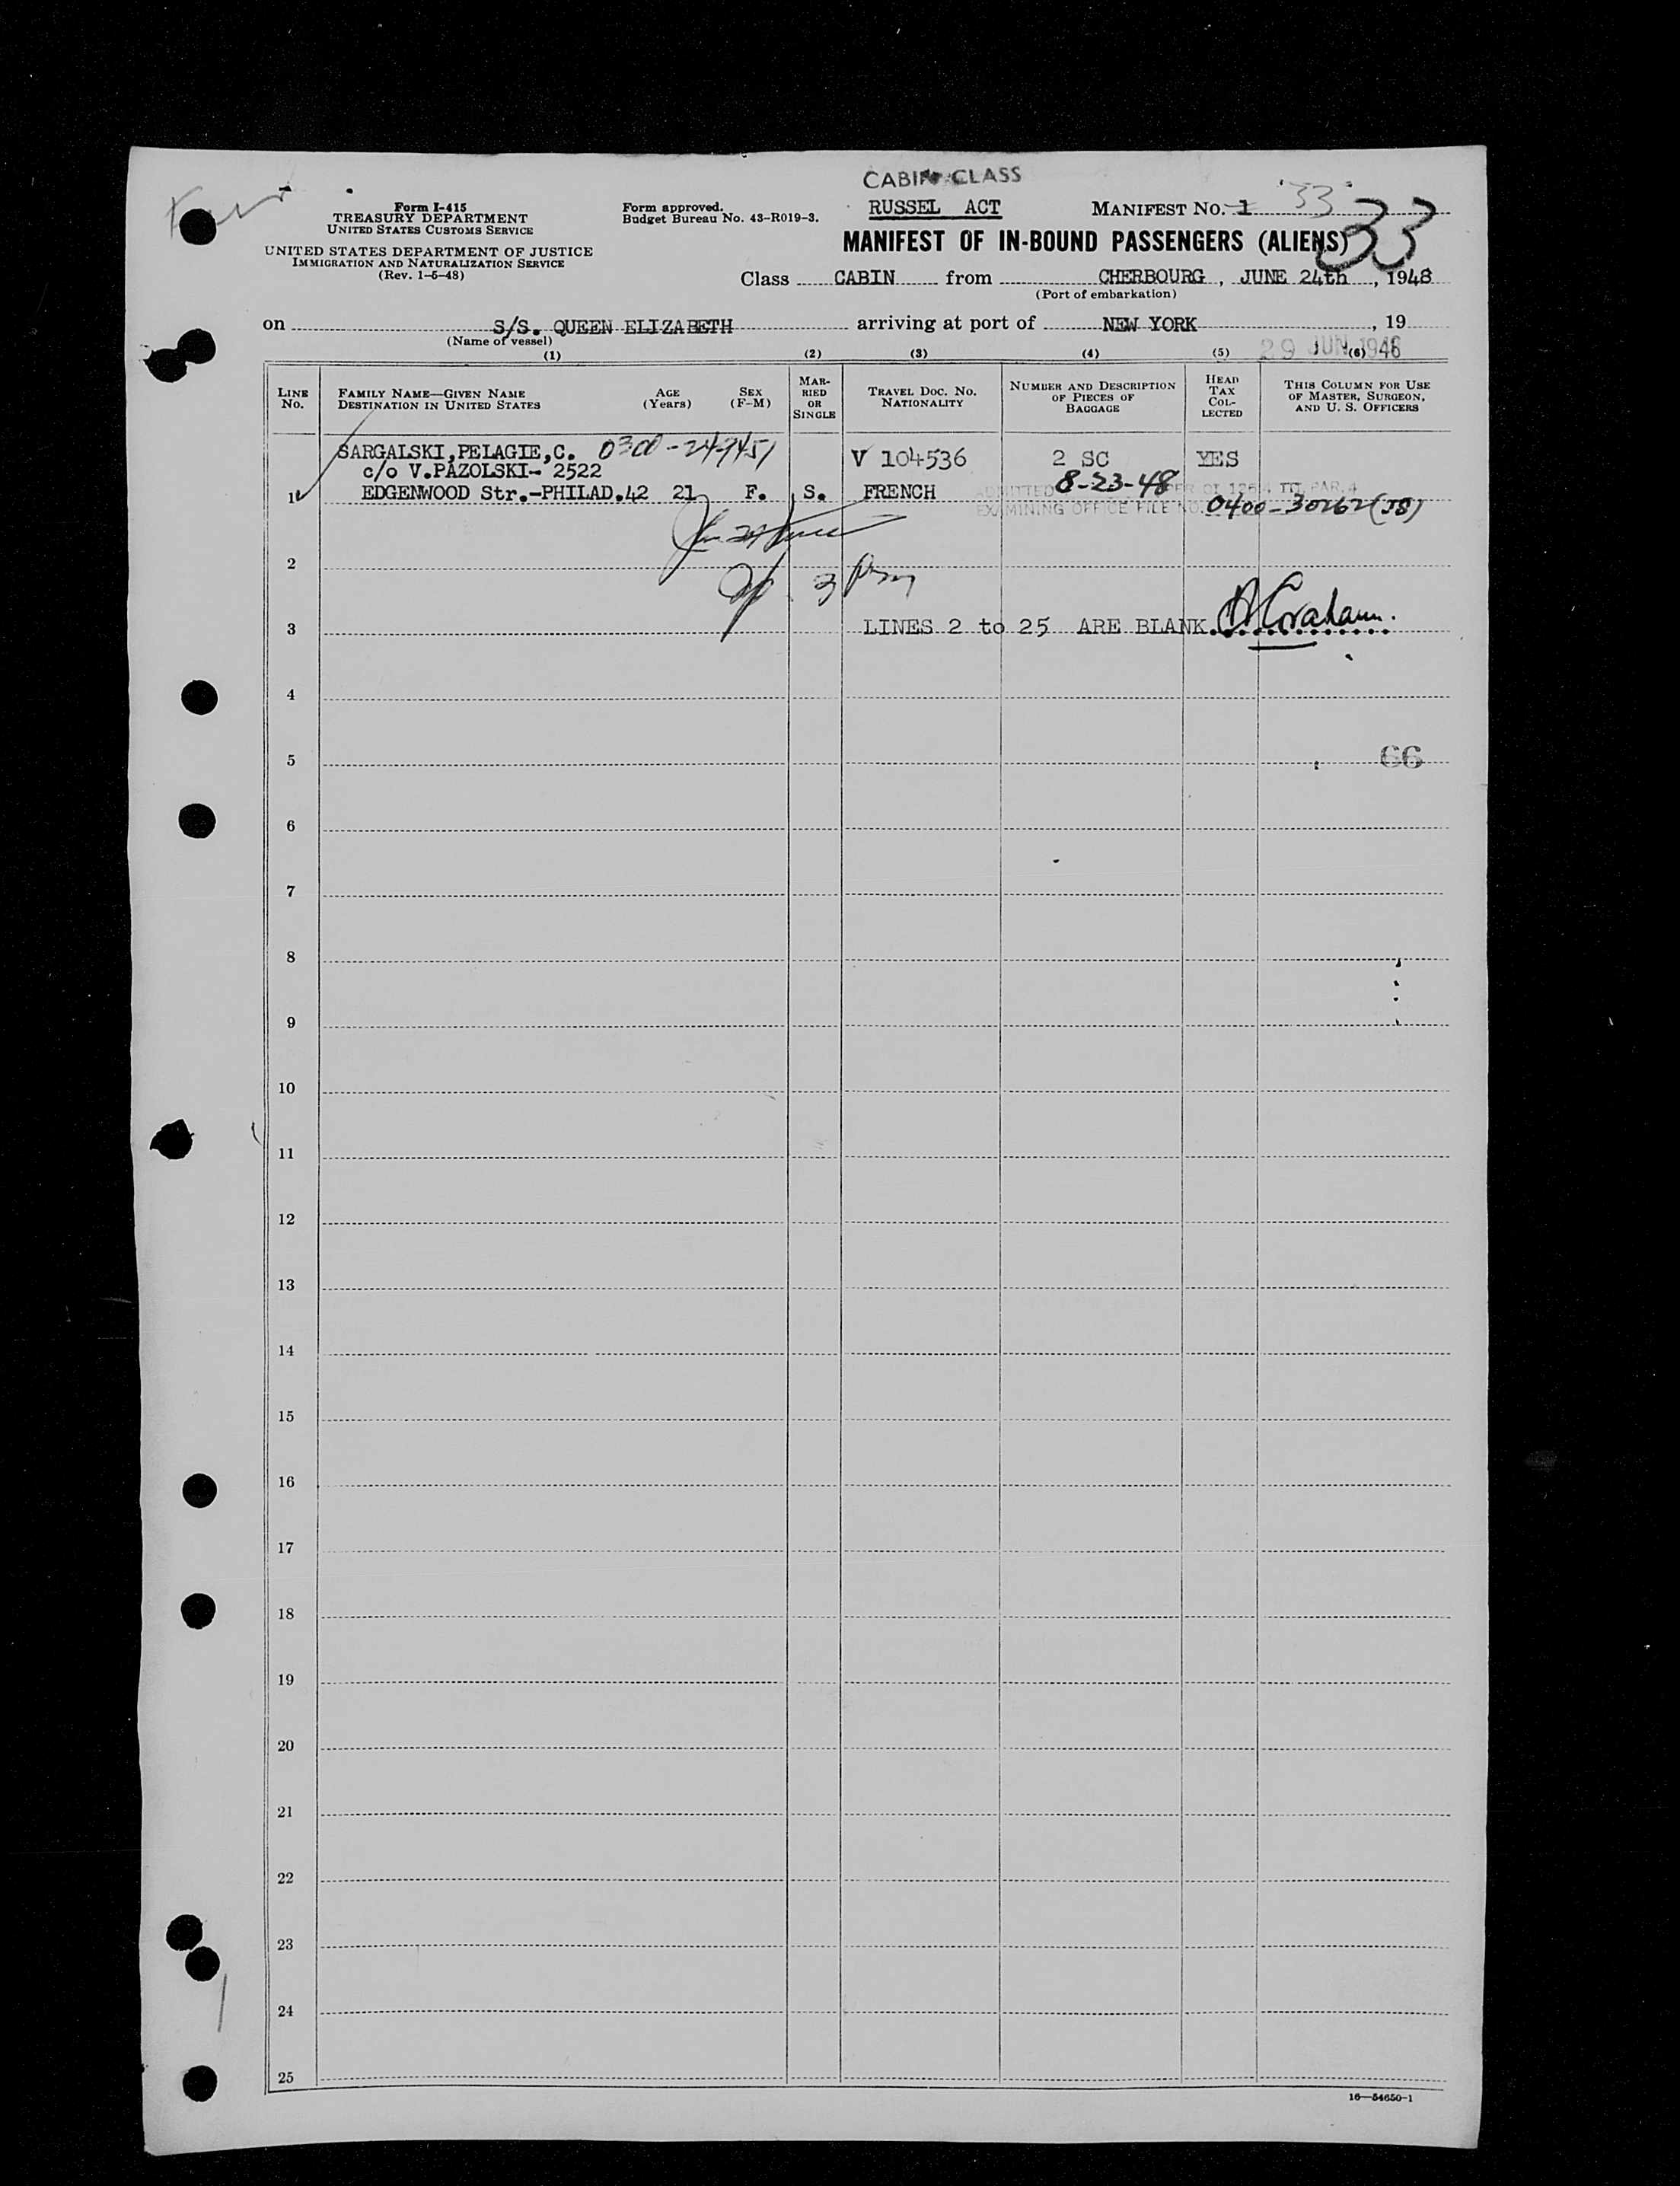 CABIN CLASS
Form I-415
TREASURY DEPARTMENT
UNITED STATES CUSTOMS SERVICE
Form approved.
Budget Bureau No. 43-R019-3.
RUSSEL ACT
MANIFEST No. 1 33
33
UNITED STATES DEPARTMENT OF JUSTICE
IMMIGRATION AND NATURALIZATION SERVICE
(Rev. 1-5-48)
MANIFEST OF IN-BOUND PASSENGERS (ALIENS)
Class CABIN from CHERBOURG, JUNE 24th, 1948
(Port of embarkation)
on S/S. QUEEN ELIZABETH arriving at port of NEW YORK, 19
(Name of vessel)
29 JUN 1948
(1) (2) (3) (4) (5) (6)
LINE No.
FAMILY NAME—GIVEN NAME
DESTINATION IN UNITED STATES
AGE (Years)
SEX (F-M)
MARRIED OR SINGLE
TRAVEL DOC. No.
NATIONALITY
NUMBER AND DESCRIPTION OF PIECES OF BAGGAGE
HEAD TAX COLLECTED
THIS COLUMN FOR USE OF MASTER, SURGEON, AND U. S. OFFICERS
SARGALSKI,PELAGIE,C. 0300-249451 V 104536 2 SC YES
c/o V.PAZOLSKI- 2522
1 EDGENWOOD Str.-PHILAD.42 21 F. S. FRENCH
ADMITTED 8-23-48
EXAMINING OFFICE FILE NO. 0400-30262(J8)
2
3 LINES 2 to 25 ARE BLANK
4
5 66
6
7
8
9
10
11
12
13
14
15
16
17
18
19
20
21
22
23
24
25
16—54650-1